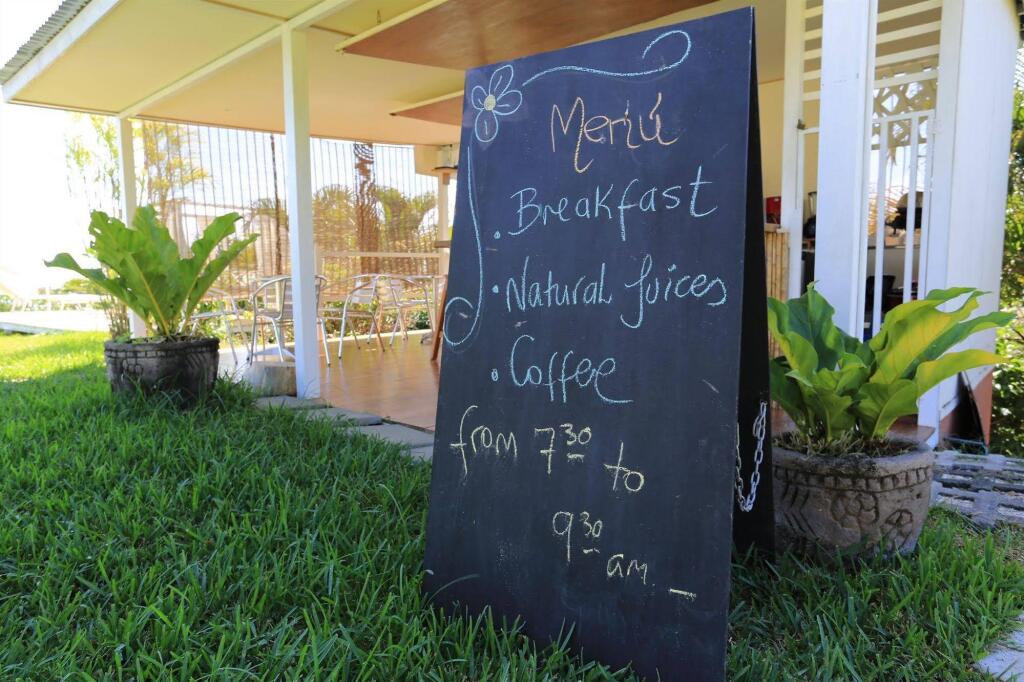 Menú
. Breakfast
. Natural Juices
. Coffee
from 7 30
to
9 30
am.